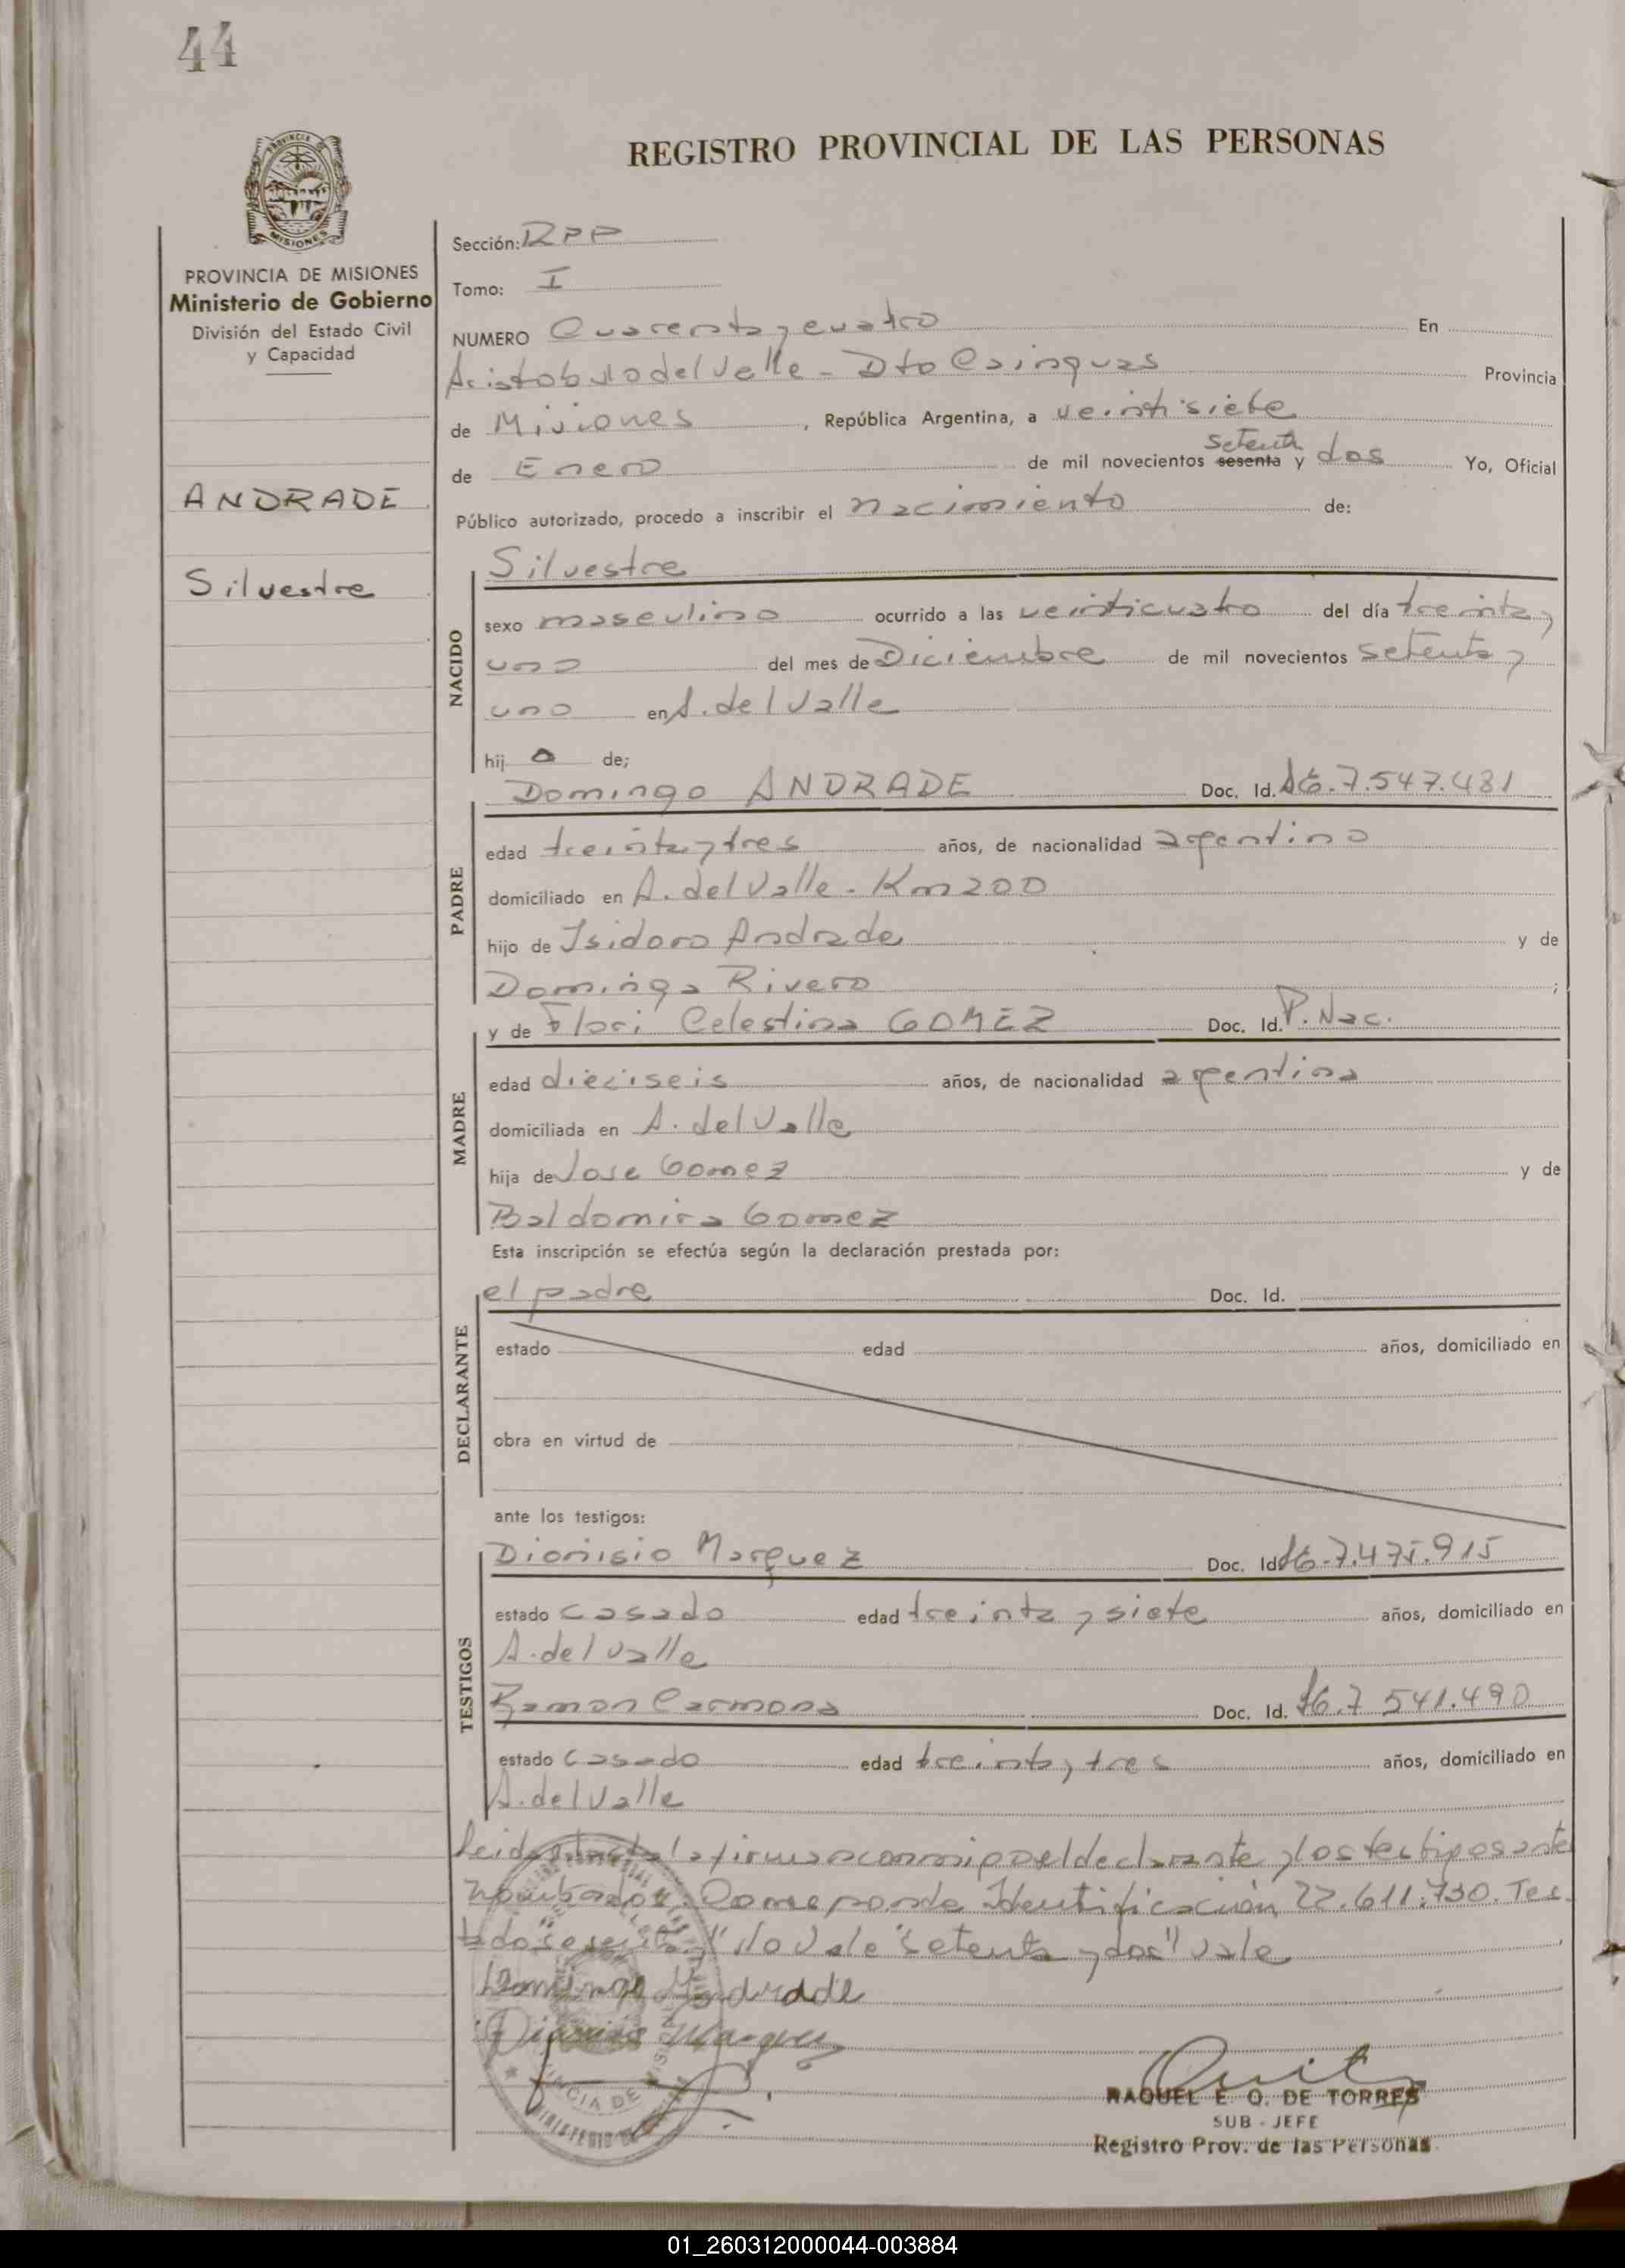 44
REGISTRO PROVINCIAL DE LAS PERSONAS
PROVINCIA DE MISIONES
Ministerio de Gobierno
División del Estado Civil
y Capacidad
ANDRADE
Silvestre
Sección: RPP
Tomo: I
NUMERO Cuarenta y cuatro En
Aristobulo del Valle - Dto Cainguas Provincia
de Misiones, República Argentina, a veintisiete
setenta
de Enero de mil novecientos sesenta y dos Yo, Oficial
Público autorizado, procedo a inscribir el nacimiento de:
NACIDO
Silvestre
sexo masculino ocurrido a las veinticuatro del día treinta y
uno del mes de Diciembre de mil novecientos setenta y
uno en A. del Valle
hij o de;
PADRE
Domingo ANDRADE Doc. Id. 7.547.481
edad treinta y tres años, de nacionalidad argentino
domiciliado en A. del Valle - Km 200
hijo de Isidoro Andrade y de
Dominga Rivero ;
MADRE
y de Flori Celestina GOMEZ Doc. Id. P. Nac.
edad dieciseis años, de nacionalidad argentina
domiciliada en A. del Valle
hija de Jose Gomez y de
Baldomira Gomez
Esta inscripción se efectúa según la declaración prestada por:
DECLARANTE
el padre Doc. Id.
estado edad años, domiciliado en
obra en virtud de
ante los testigos:
TESTIGOS
Dionisio Marquez Doc. Id. 7.475.915
estado casado edad treinta y siete años, domiciliado en
A. del Valle
Ramon Carmona Doc. Id. 7 541.490
estado casado edad treinta y tres años, domiciliado en
A. del Valle
Leida el acta la firman conmigo el declarante y los testigos ante
nombrados. Corresponde Identificación 22.611.730. Tes
tado "sesenta y" No Vale "setenta y dos" Vale
Domingo Andrade
Dionisio Marquez
RAQUEL E. Q. DE TORRES
SUB - JEFE
Registro Prov. de las Personas
01_260312000044-003884